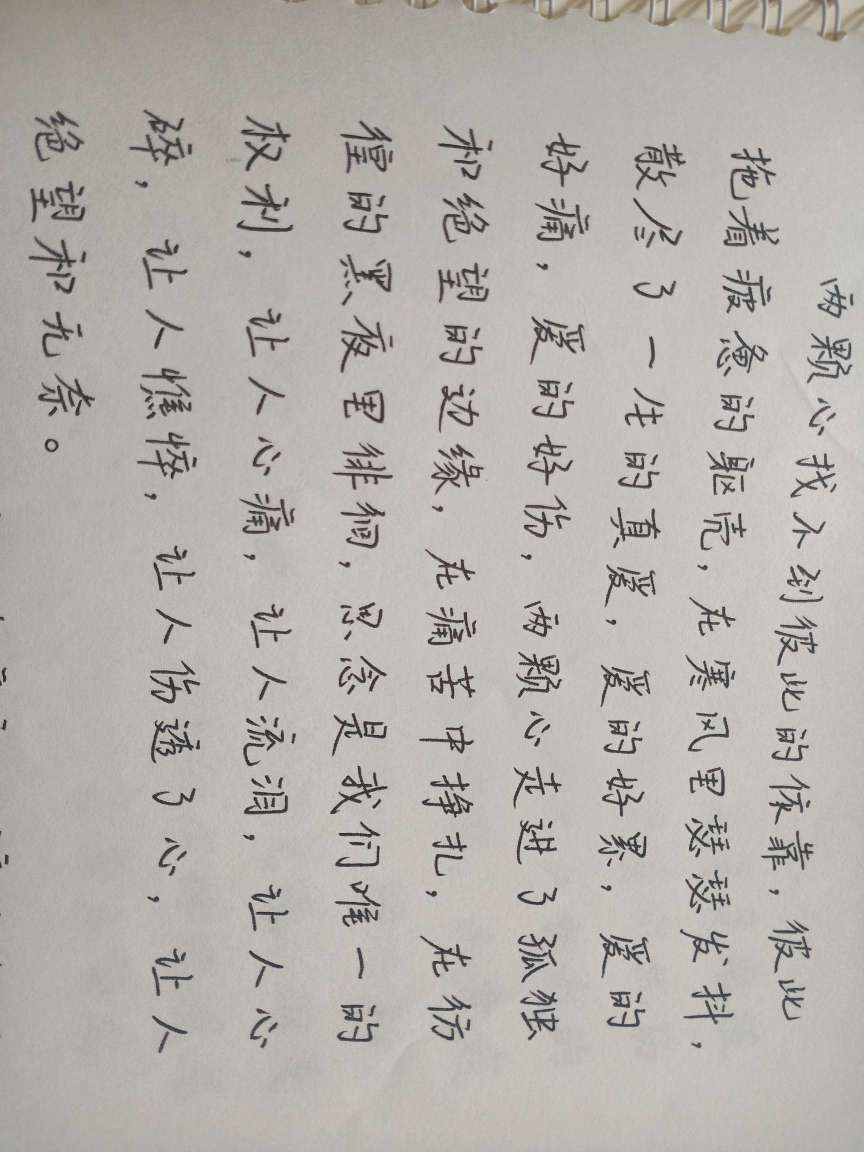 两颗心找不到彼此的依靠，彼此
拖着疲惫的躯壳，在寒风里瑟瑟发抖，
散尽了一生的真爱，爱的好累，爱的
好痛，爱的好伤，两颗心走进了孤独
和绝望的边缘，在痛苦中挣扎，在彷
徨的黑夜里徘徊，思念是我们唯一的
权利，让人心痛，让人流泪，让人心
碎，让人憔悴，让人伤透了心，让人
绝望和无奈。